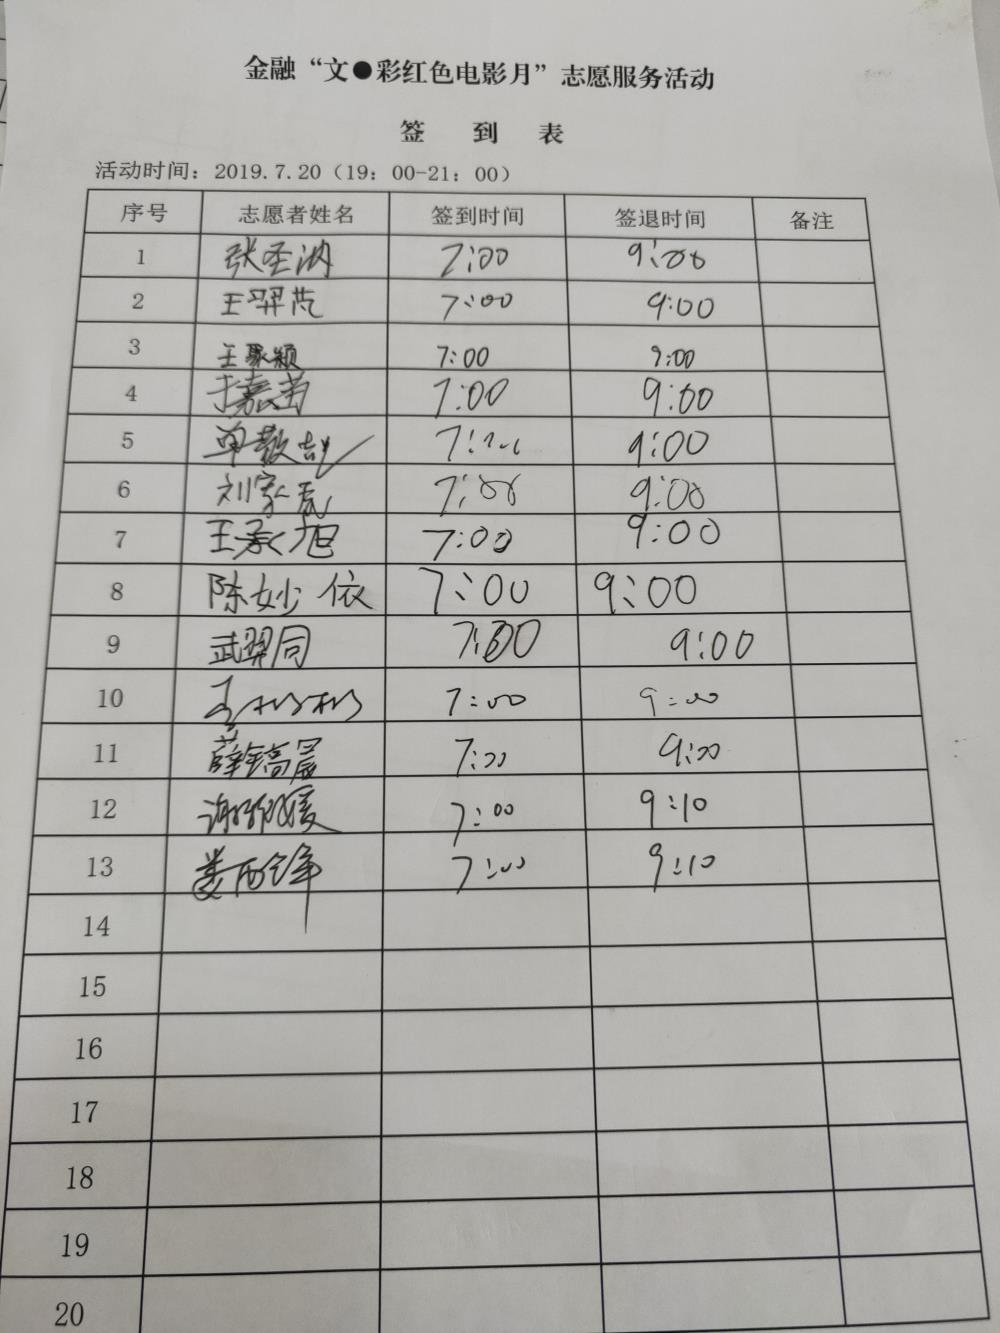 金融“文●彩红色电影月”志愿服务活动
签 到 表
活动时间：2019.7.20（19：00-21：00）
序号 志愿者姓名 签到时间 签退时间 备注
1 张圣 7:00 9:00
2 王羿 7:00 9:00
3 王颖 7:00 9:00
4 于嘉 7:00 9:00
5 单 7:00 9:00
6 刘家 7:00 9:00
7 王承旭 7:00 9:00
8 陈妙依 7:00 9:00
9 武翠同 7:00 9:00
10 7:00 9:00
11 薛镐晨 7:00 9:00
12 谢媛 7:00 9:10
13 娄西锋 7:00 9:10
14
15
16
17
18
19
20